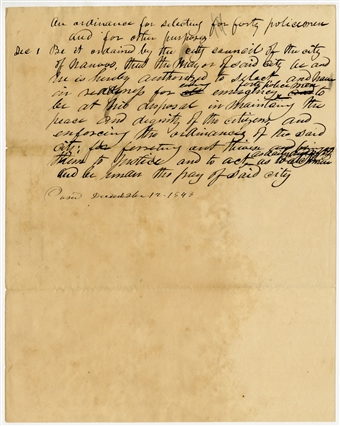 An ordinance for selecting for forty policemen
and for other purposes
Sec 1 Be it ordained by the city council of the city
of Nauvoo, that the Mayor of said city be and
he is hereby authorized to select and have
in readiness for every emergency forty policemen to
be at his disposal in maintaining the
peace and dignity of the citizens and
enforcing the ordinances of the said
city: for ferreting out thieves and bringing
them to justice and to act as daily & night watchmen
and be under the pay of said city
Passed December 12 1843